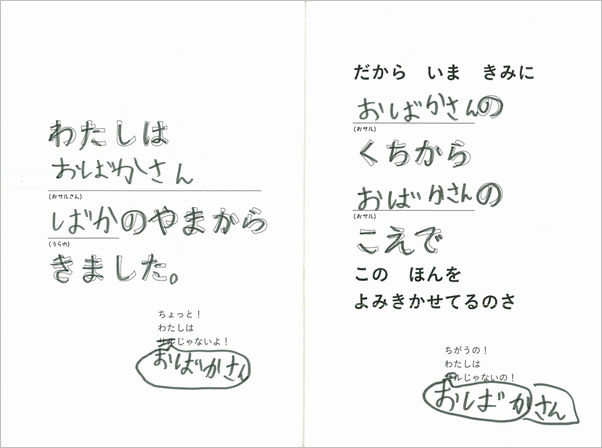 わたしは
おしばかさん
(おサルさん)
しばかのやまから
(うらの)
きました。
ちょっと！
わたしは
サルじゃないよ！
おしばかさん
だから　いま　きみに
おしばかさんの
(おサル)
くちから
おしばかさんの
(おサル)
こえで
この　ほんを
よみきかせてるのさ
ちがうの！
わたしは
サルじゃないの！
おしばかさん